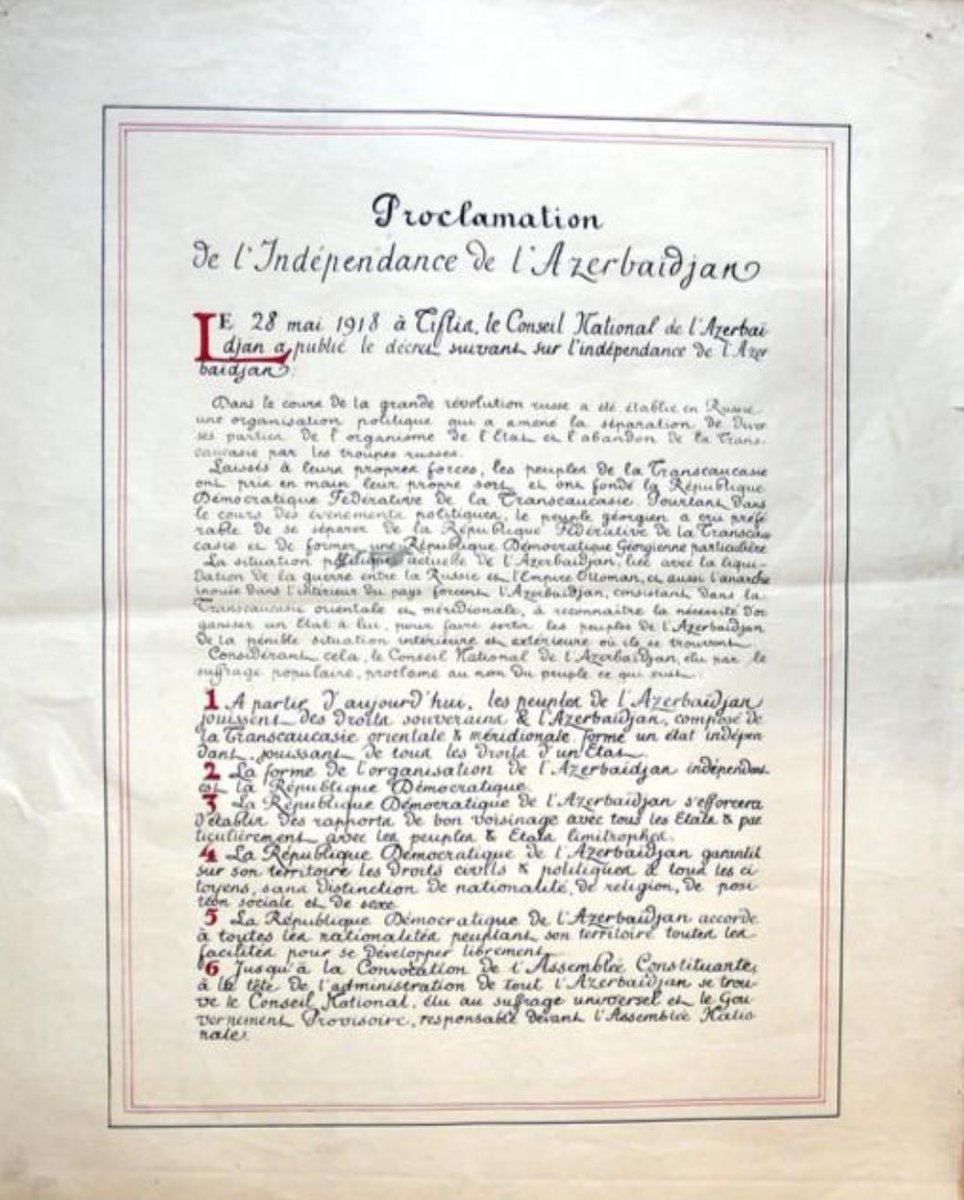 Proclamation
de l'Indépendance de l'Azerbaïdjan
LE 28 mai 1918 à Tiflis, le Conseil National de l'Azerbaï
djan a publié le décret suivant sur l'indépendance de l'Azer
baïdjan:
Dans le cours de la grande révolution russe a été établie en Russie
une organisation politique qui a amené la séparation de diver
ses parties de l'organisme de l'Etat et l'abandon de la Trans-
caucasie par les troupes russes.
Laissés à leurs propres forces, les peuples de la Transcaucasie
ont pris en main leur propre sort et ont fondé la République
Démocratique Fédérative de la Transcaucasie Pourtant dans
le cours des évènements politiques, le peuple géorgien a cru préfé
rable de se séparer de la République Fédérative de la Transcau
casie et de former une République Démocratique Géorgienne particulière
La situation politique actuelle de l'Azerbaïdjan, liée avec la liqui-
dation de la guerre entre la Russie et l'Empire Ottoman, et aussi l'anarchie
inouïe dans l'intérieur du pays forcent l'Azerbaïdjan, consistant dans la
Transcaucasie orientale et méridionale, à reconnaître la nécessité d'or
ganiser un Etat à lui, pour faire sortir les peuples de l'Azerbaïdjan
de la pénible situation intérieure et extérieure où ils se trouvent
Considérant cela, le Conseil National de l'Azerbaïdjan, élu par le
suffrage populaire, proclame au nom du peuple ce qui suit:
1 A partir d'aujourd'hui, les peuples de l'Azerbaïdjan
jouissent des droits souverains & l'Azerbaïdjan, composé de
la Transcaucasie orientale & méridionale forme un état indépen
dant, jouissant de tous les droits d'un Etat
2 La forme de l'organisation de l'Azerbaïdjan indépendant
est la République Démocratique
3 La République Démocratique de l'Azerbaïdjan s'efforcera
d'établir des rapports de bon voisinage avec tous les Etats & par
ticulièrement avec les peuples & Etats limitrophes.
4 La République Démocratique de l'Azerbaïdjan garantit
sur son territoire les droits civils & politiques à tous les ci
toyens, sans distinction de nationalité, de religion, de posi
tion sociale et de sexe
5 La République Démocratique de l'Azerbaïdjan accorde
à toutes les nationalités peuplant son territoire toutes les
facilités pour se développer librement
6 Jusqu'à la Convocation de l'Assemblée Constituante,
à la tête de l'administration de tout l'Azerbaïdjan se trou-
ve le Conseil National, élu au suffrage universel et le Gou-
vernement Provisoire, responsable devant l'Assemblée Natio
nale.